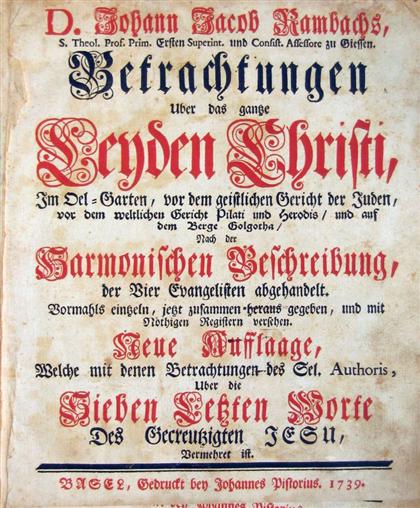 D. Johann Jacob Rambachs,
S. Theol. Prof. Prim. Ersten Superint. und Consist. Assessore zu Giessen.
Betrachtungen
Uber das gantze
Leyden Christi,
Im Oel-Garten, vor dem geistlichen Gericht der Juden,
vor dem weltlichen Gericht Pilati und Herodis/ und auf
dem Berge Golgotha/
Nach der
Harmonischen Beschreibung,
der Vier Evangelisten abgehandelt.
Vormahls eintzeln, jetzt zusammen-heraus gegeben, und mit
Nöthigen Registern versehen.
Neue Aufflaage,
Welche mit denen Betrachtungen des Sel. Authoris,
Uber die
Sieben Letzten Worte
Des Gecreutzigten JESU,
Vermehret ist.
BASEL, Gedruckt bey Johannes Pistorius. 1739.